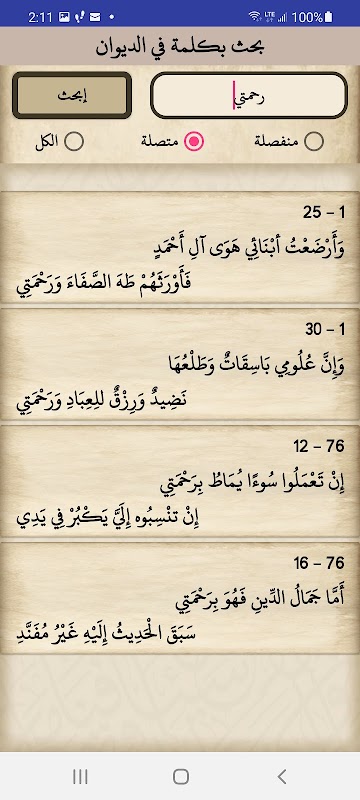 2:11 LTE 100%
بحث بكلمة في الديوان
رحمتي
إبحث
منفصلة متصلة الكل
25 – 1
وَأَرْضَعْتُ أَبْنَائِي هَوَى آلِ أَحْمَدٍ
فَأَوْرَثَهُمْ طَهَ الصَّفَاءَ وَرَحْمَتِي
30 – 1
وَإِنَّ عُلُومِي بَاسِقَاتٌ وَطَلْعُهَا
نَضِيدٌ وَرِزْقٌ للِعِبَادِ وَرَحْمَتِي
12 – 76
إِنْ تَعْمَلُوا سُوءًا يُمَاطُ بِرَحْمَتِي
إِنْ تنْسِبُوه إِلَيَّ يَكْبُرْ فِي يَدِي
16 – 76
أَمَّا جَمَالُ الدِّينِ فَهُوَ بِرَحْمَتِي
سَبَقَ الْحَدِيثُ إِلَيْهِ غَيْرُ مُفَنَّدِ